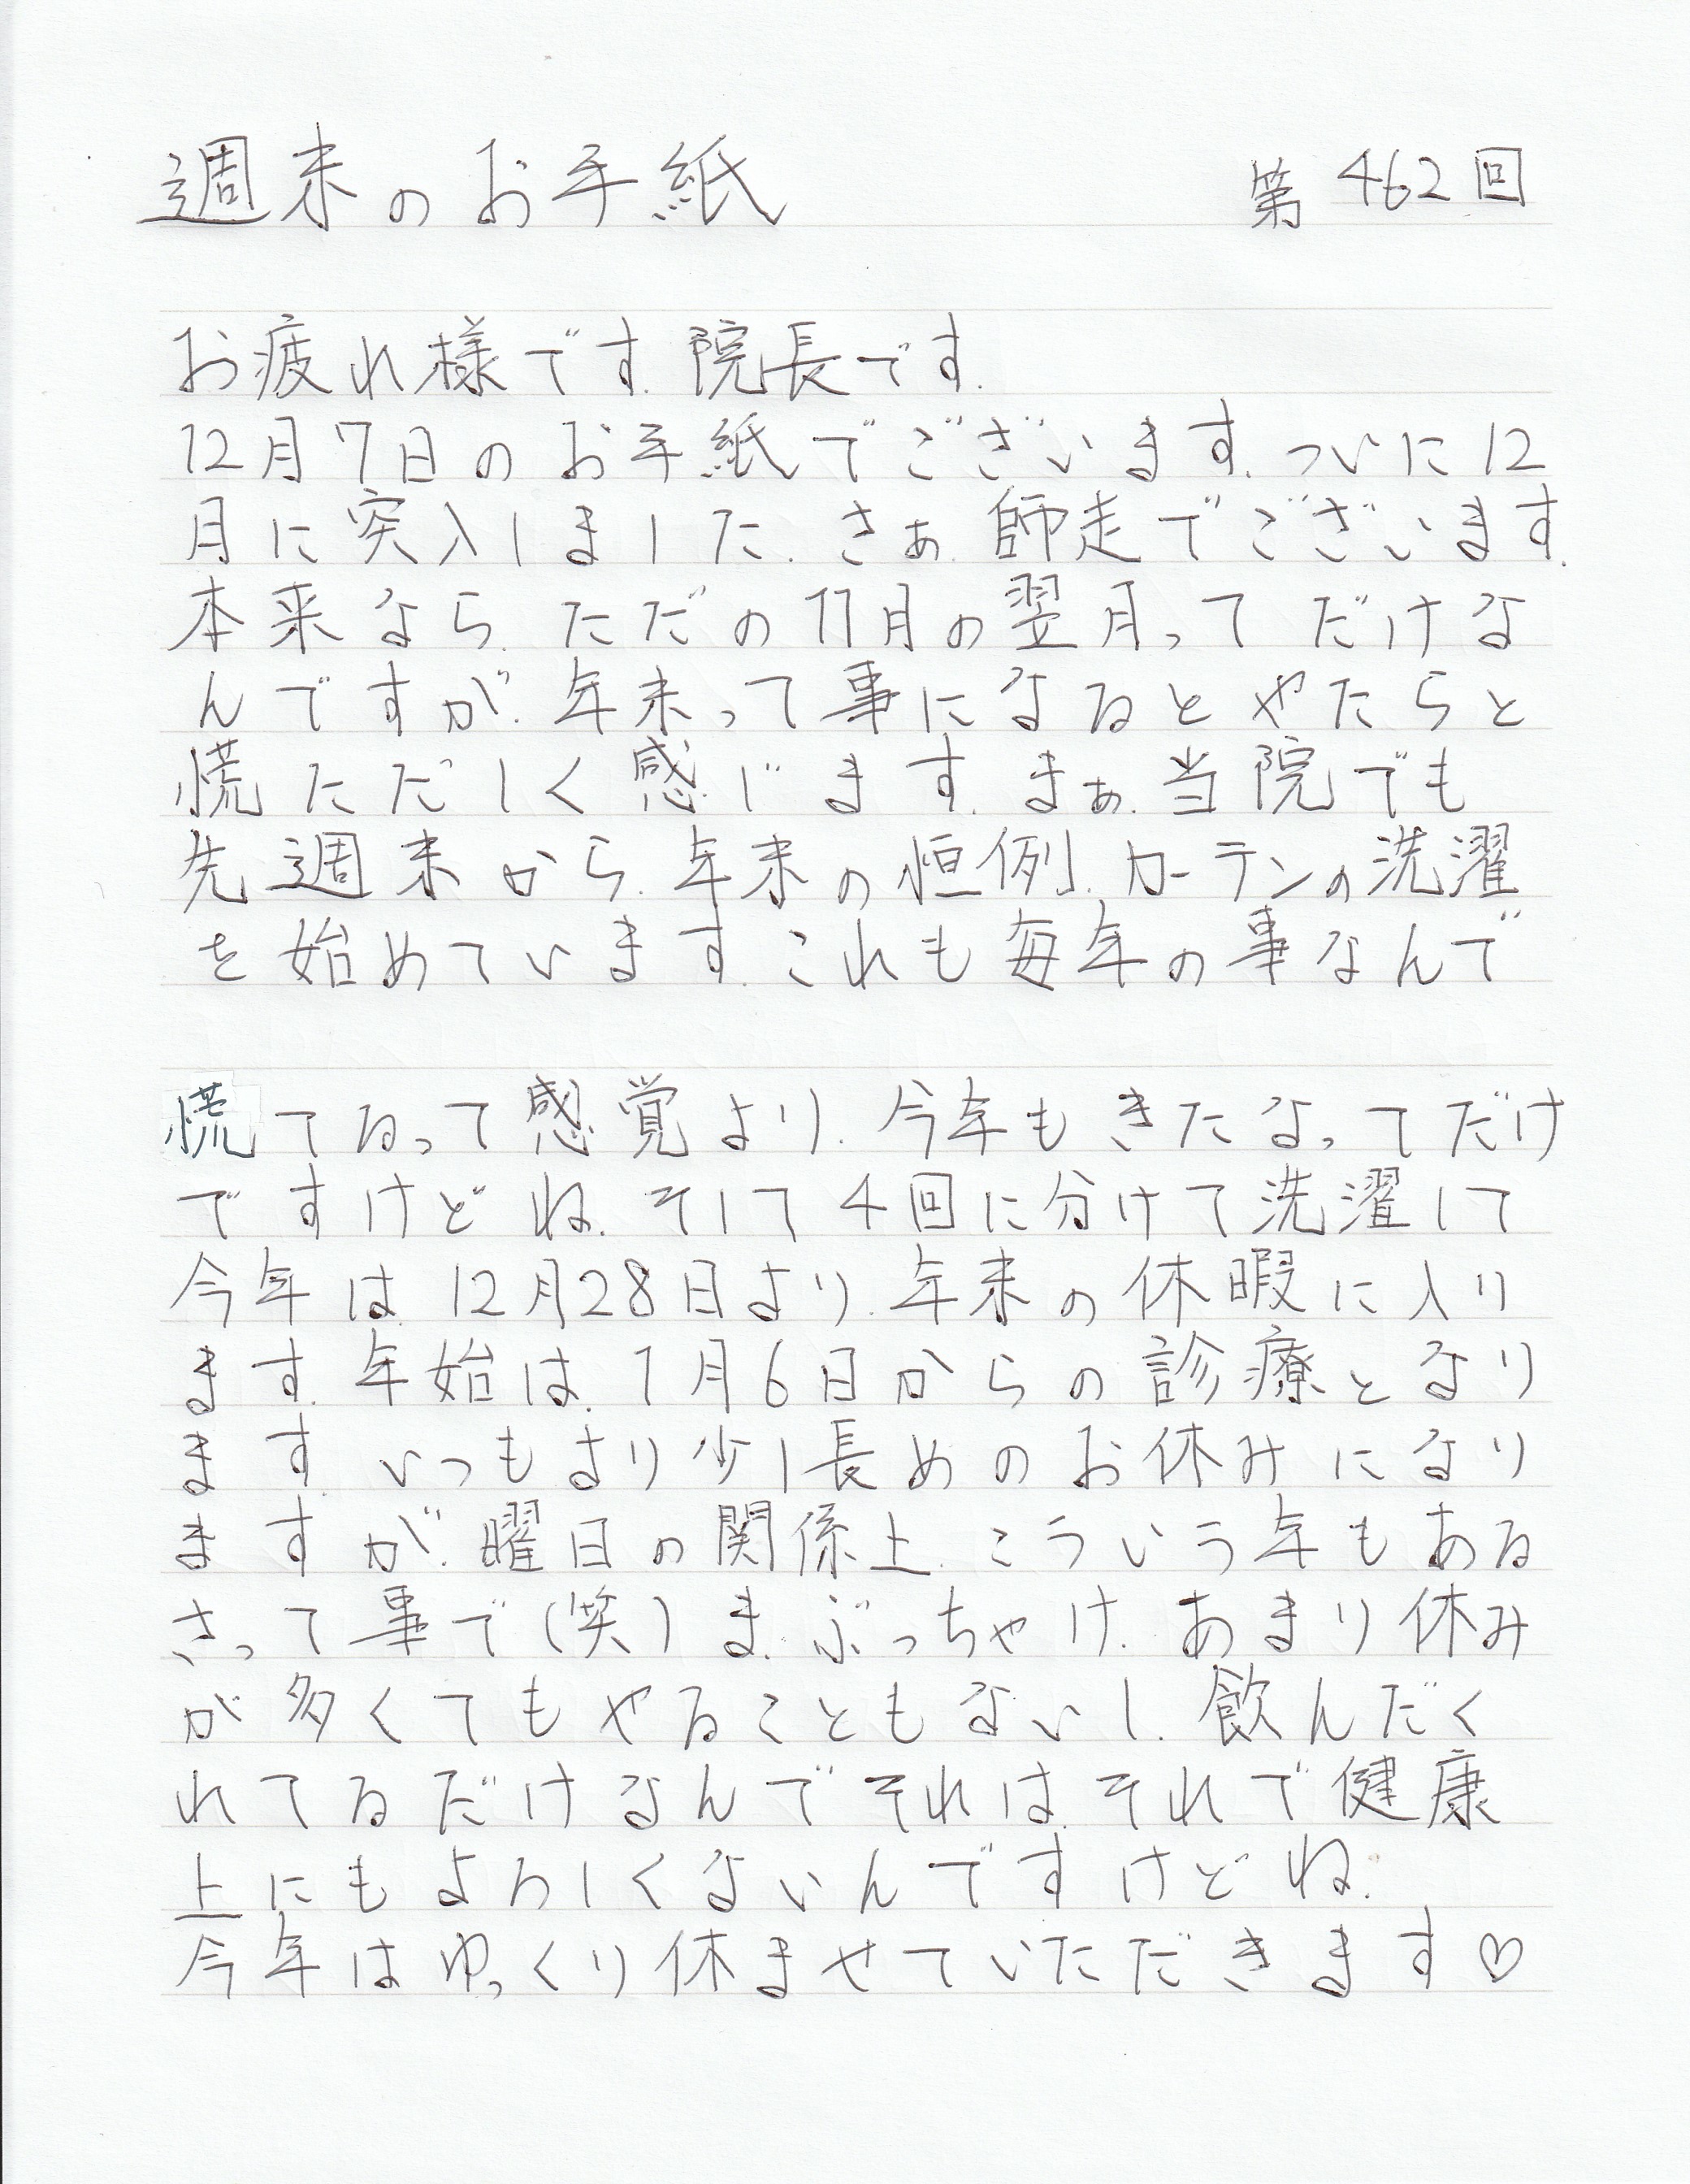 週末のお手紙 第462回
お疲れ様です.院長です.
12月7日のお手紙でございます.ついに12
月に突入しました.さぁ.師走でございます.
本来なら.ただの11月の翌月って だけな
んですが.年末って事になるとやたらと
慌ただしく感じます.まぁ.当院でも
先週末から.年末の恒例.カーテンの洗濯
を始めています.これも毎年の事なんで
慌てるって感覚より.今年もきたなってだけ
ですけどね.そして4回に分けて洗濯して
今年は12月28日より.年末の休暇に入り
ます.年始は.1月6日からの診療となり
ます.いつもより少し長めのお休みになり
ますが.曜日の関係上.こういう年もある
さって事で(笑)ま.ぶっちゃけ.あまり休み
が多くてもやることもないし.飲んだく
れてるだけなんでそれは.それで健康
上にもよろしくないんですけどね.
今年はゆっくり休ませていただきます♡